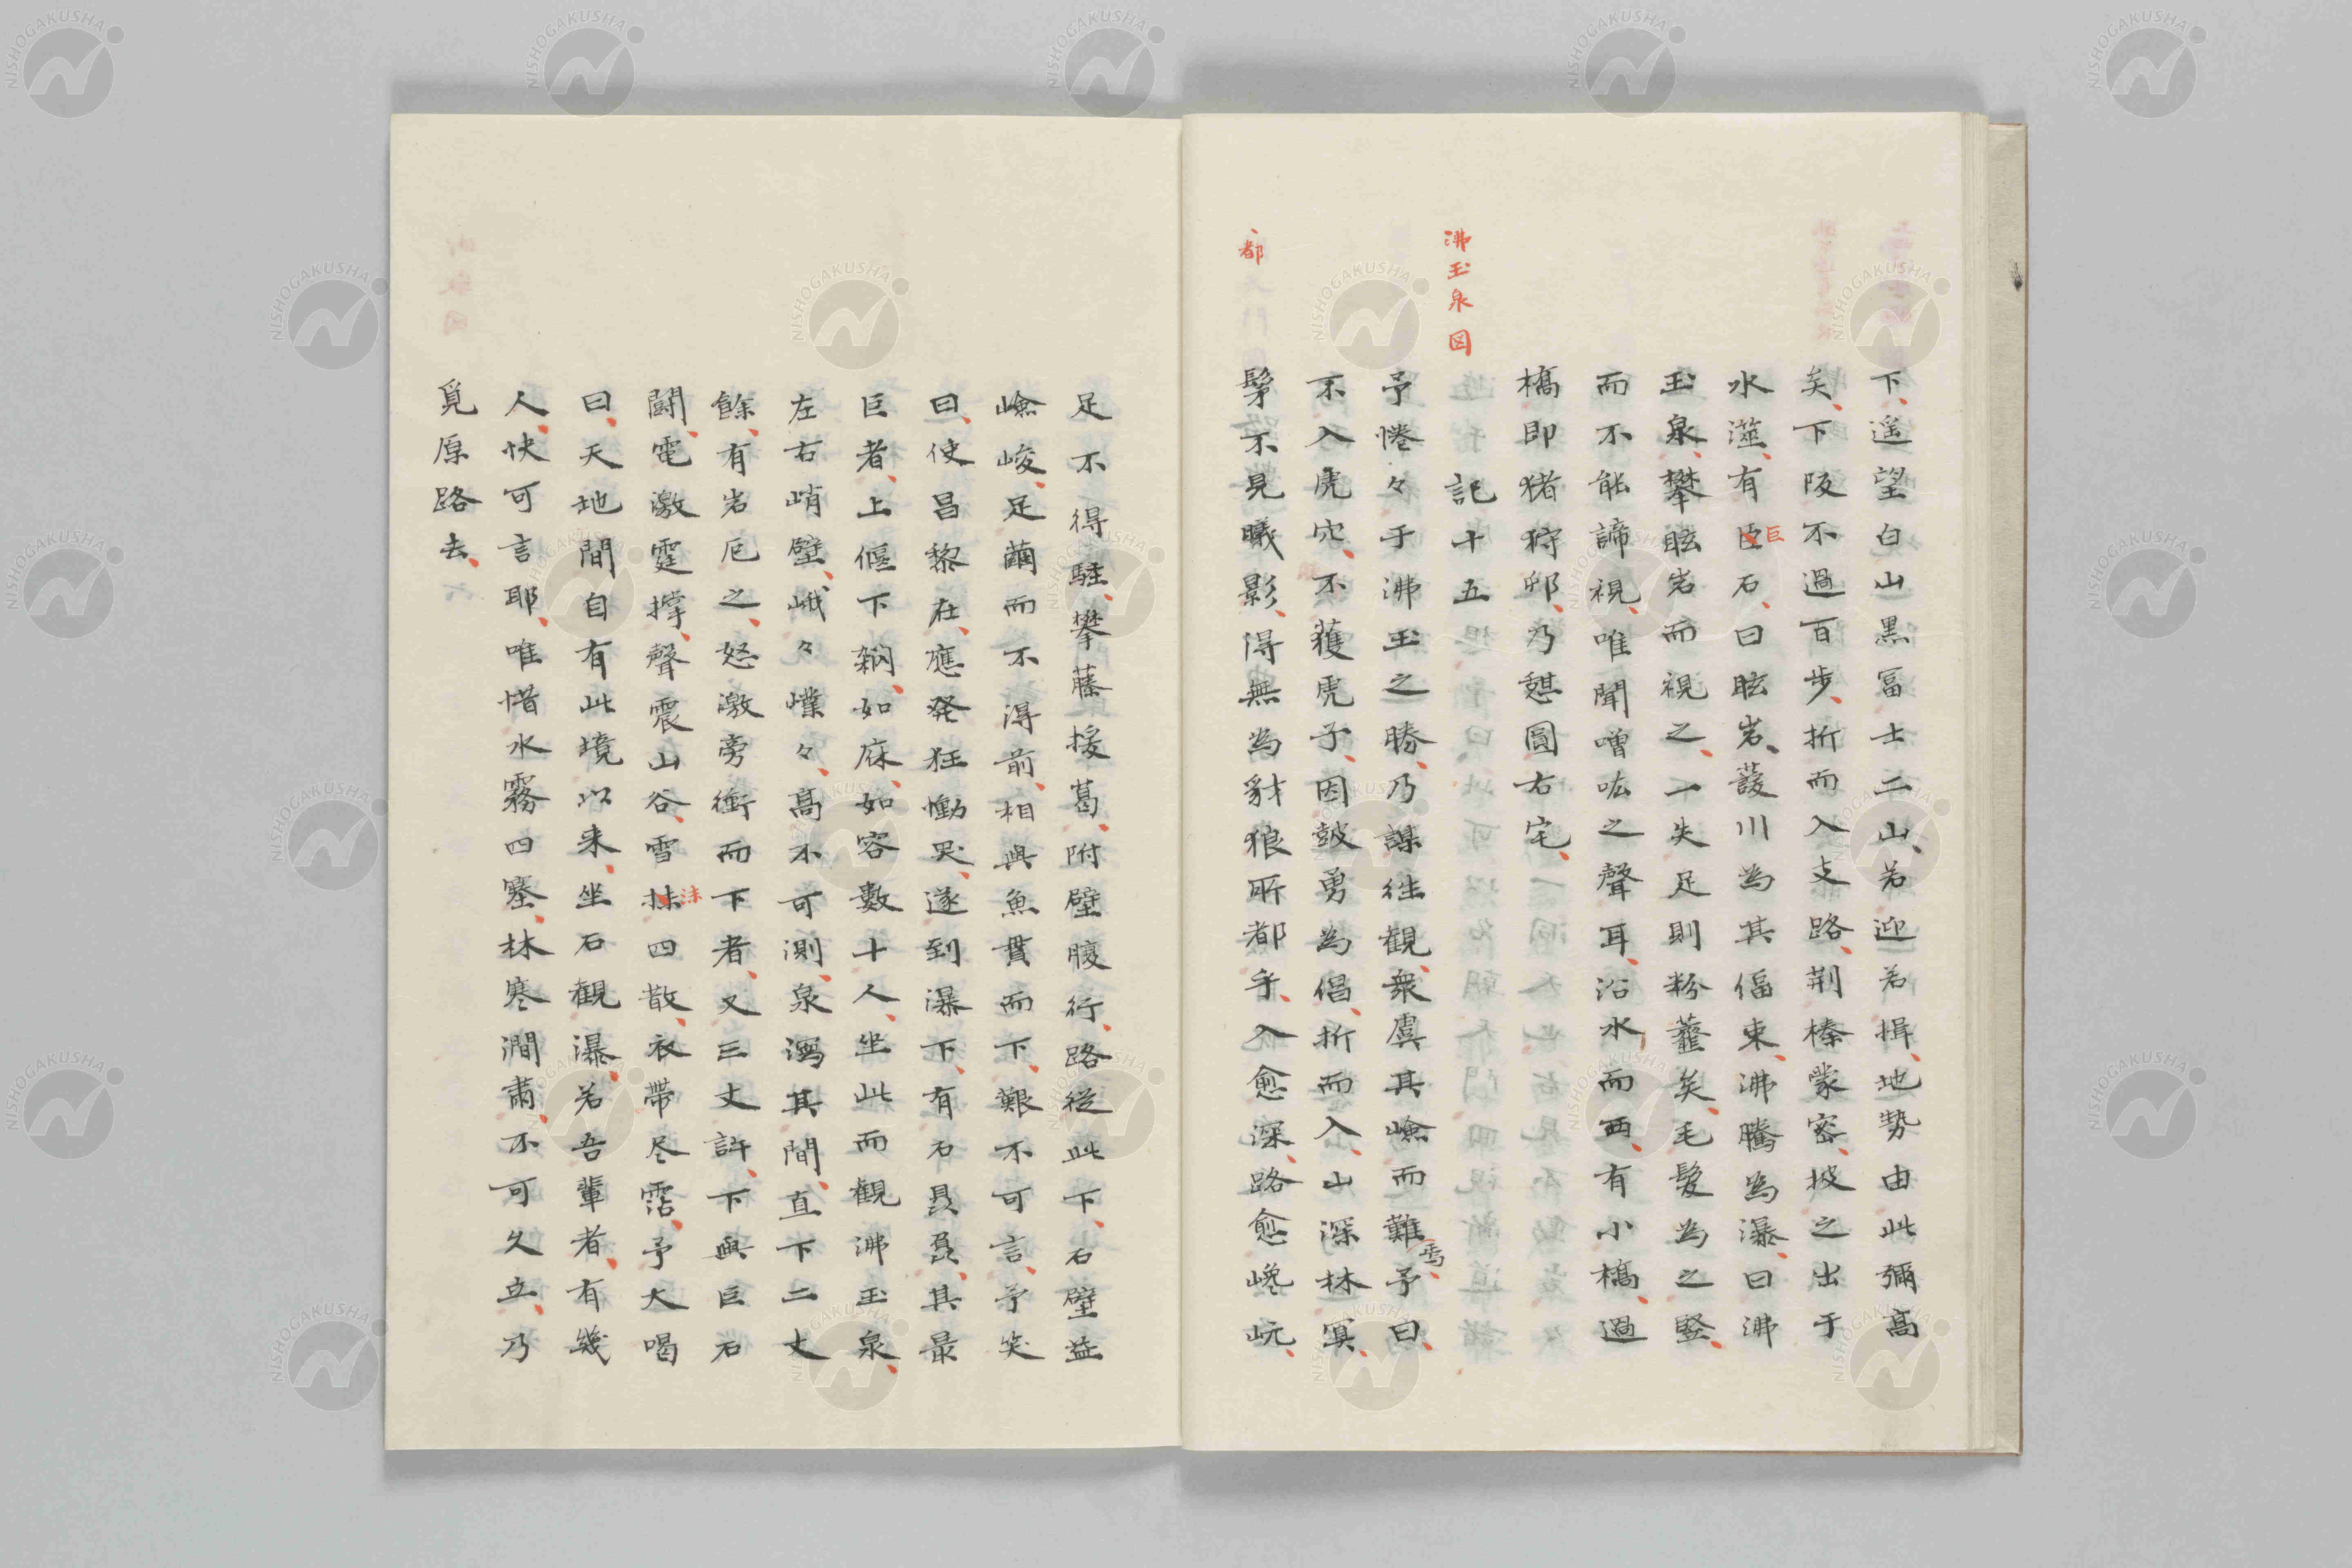 下、遥望白山黒冨士二山、若迎若揖、地勢由此彌高
矣、下阪不過百歩、折而入支路、荆榛蒙密、披之出于
水澨、有臣石、曰眩岩、護川為其偪束、沸騰為瀑、曰沸
巨
玉泉、攀眩岩而視之、一失足則粉虀矣、毛髪為之竪、
而不能諦視、唯聞噌吰之聲耳、沿水而西、有小橋、過
橋即猪狩邨、乃憩圓右宅、
沸玉泉図
記十五
予惓々于沸玉之勝、乃謀徃観、衆虞其嶮而難焉、予曰、
不入虎穴、不獲虎子、因鼓勇為倡、折而入、山深林冥、
、都
髣不見曦影、得無為豺狼所都乎、入愈深、路愈巉岏、
足不得駐、攀藤援葛、附壁腹行、路従此下、石壁益
嶮峻、足繭而不得前、相與魚貫而下、艱不可言、予笑
曰、使昌黎在、應発狂慟哭、遂到瀑下、有石贔屓、其最
巨者、上偃下網、如庥、如容數十人、坐此而觀沸玉泉、
左右峭壁、峨々嶪々、高不可測、泉瀉其間、直下二丈
餘、有岩厄之、怒激旁衝而下者、又三丈許、下與巨石
闘、電激霆撑、聲震山谷、雪抹四散、衣帶尽霑、予大喝
沫
曰、天地間自有此境以来、坐石觀瀑、若吾輩者、有幾
人、快可言耶、唯惜水霧四塞、林寒澗肅、不可久立、乃
覓原路去、